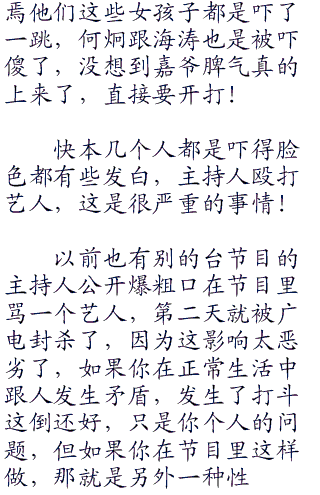 焉他们这些女孩子都是吓了
一跳，何炯跟海涛也是被吓
傻了，没想到嘉爷脾气真的
上来了，直接要开打！
快本几个人都是吓得脸
色都有些发白，主持人殴打
艺人，这是很严重的事情！
以前也有别的台节目的
主持人公开爆粗口在节目里
骂一个艺人，第二天就被广
电封杀了，因为这影响太恶
劣了，如果你在正常生活中
跟人发生矛盾，发生了打斗
这倒还好，只是你个人的问
题，但如果你在节目里这样
做，那就是另外一种性